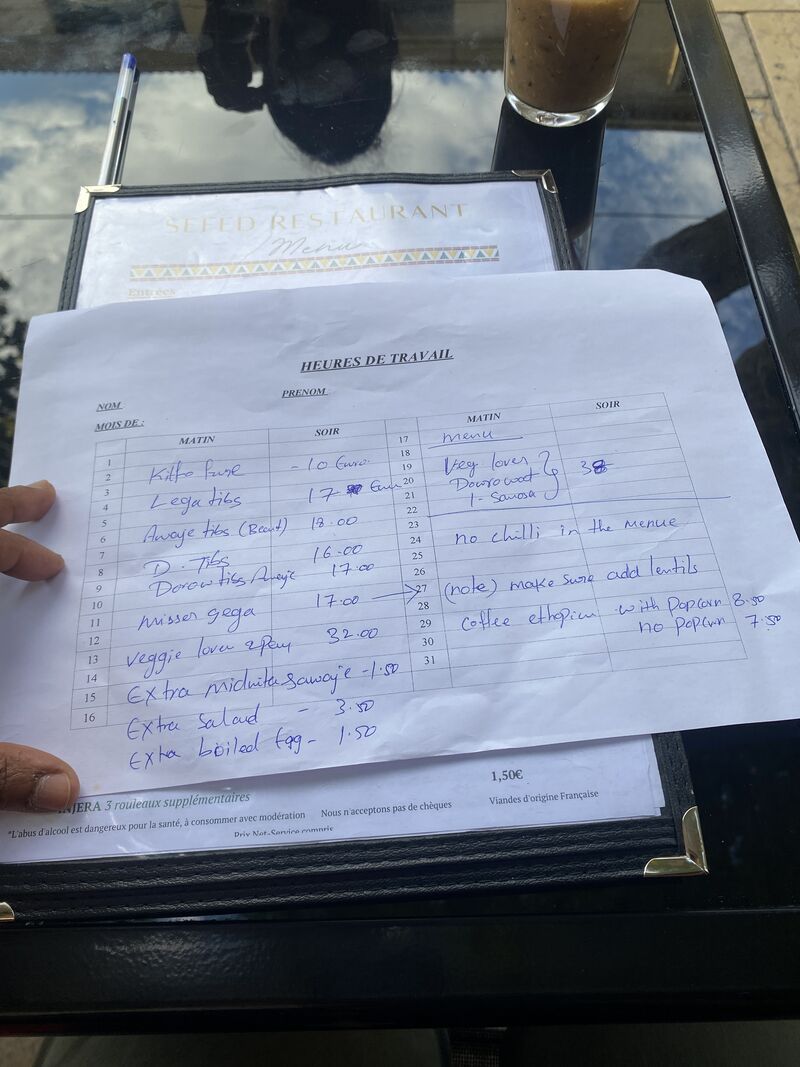 SEFED RESTAURANT
Menu
Entrées
HEURES DE TRAVAIL
NOM
PRENOM
MOIS DE :
MATIN
SOIR
1
2
3
4
5
6
7
8
9
10
11
12
13
14
15
16
Kitfo - 10 Euro
Lega tibs 17
Awaje tibs (Beaut) 18.00
D. Tibs 16.00
Dorow tibs Awaje 17.00
misser gega 17.00
Veggie lover 32.00
Extra midnita sawaje - 1.50
Extra Salaud - 3.50
Extra boiled Egg - 1.50
MATIN
SOIR
17
18
19
20
21
22
23
24
25
26
27
28
29
30
31
menu
Veg lover
Dorowoot
1 - Samosa
no chilli in the menue
(note) make sure add lentils
Coffee ethopien with Popcorn 8.50
no popcorn 7.50
INJERA 3 rouleaux supplémentaires
1,50€
*L'abus d'alcool est dangereux pour la santé, à consommer avec modération
Nous n'acceptons pas de chèques
Viandes d'origine Française
Prix Net-Service compris